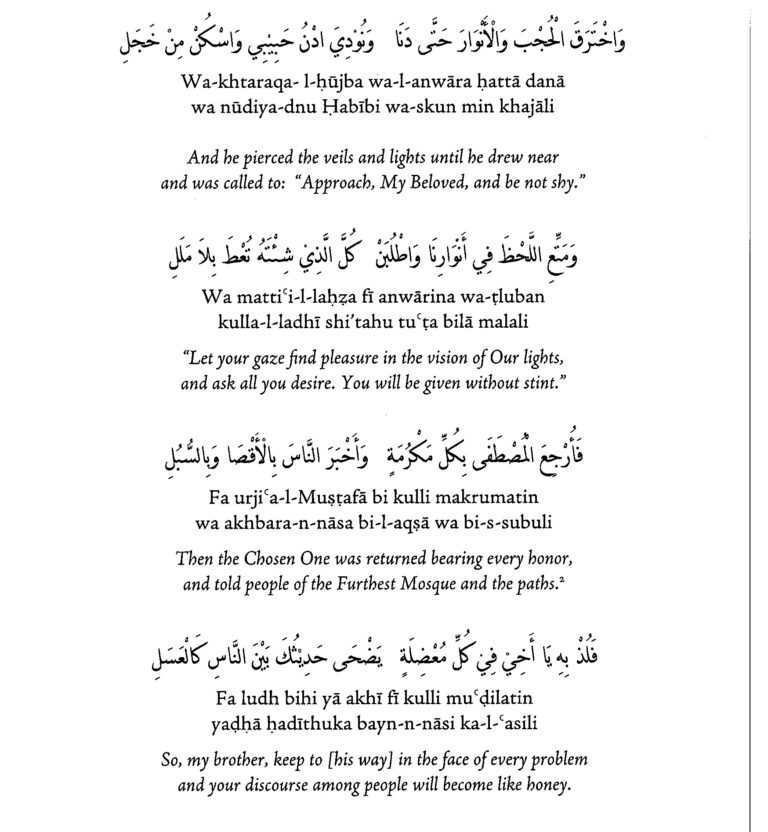 وَاخْتَرَقَ الْحُجْبَ وَالْأَنْوَارَ حَتَّى دَنَا وَنُوْدِيَ ادْنُ حَبِيْبِي وَاسْكُنْ مِنْ خَجَلِ
Wa-khtaraqa- l-ḥūjba wa-l-anwāra ḥattā danā
wa nūdiya-dnu Ḥabībi wa-skun min khajāli
And he pierced the veils and lights until he drew near
and was called to: “Approach, My Beloved, and be not shy.”
وَمَتِّعِ اللَّحْظَ فِي أَنْوَارِنَا وَاطْلُبَنْ كُلَّ الَّذِيْ شِئْتَهُ تُعْطَ بِلاَ مَلَلِ
Wa mattiʿi-l-laḥẓa fī anwārina wa-ṭluban
kulla-l-ladhī shi’tahu tuʿṭa bilā malali
“Let your gaze find pleasure in the vision of Our lights,
and ask all you desire. You will be given without stint.”
فَأُرْجِعَ الْمُصْطَفَى بِكُلِّ مَكْرُمَةٍ وَأَخْبَرَ النَّاسَ بِالْأَقْصَا وَبِالسُّبُلِ
Fa urjiʿa-l-Muṣṭafā bi kulli makrumatin
wa akhbara-n-nāsa bi-l-aqṣā wa bi-s-subuli
Then the Chosen One was returned bearing every honor,
and told people of the Furthest Mosque and the paths.²
فَلُذْ بِهِ يَا أَخِيْ فِيْ كُلِّ مُعْضِلَةٍ يَضْحَى حَدِيْثُكَ بَيْنَ النَّاسِ كَالْعَسَلِ
Fa ludh bihi yā akhī fī kulli muʿḍilatin
yaḍhā ḥadīthuka bayn-n-nāsi ka-l-ʿasili
So, my brother, keep to [his way] in the face of every problem
and your discourse among people will become like honey.